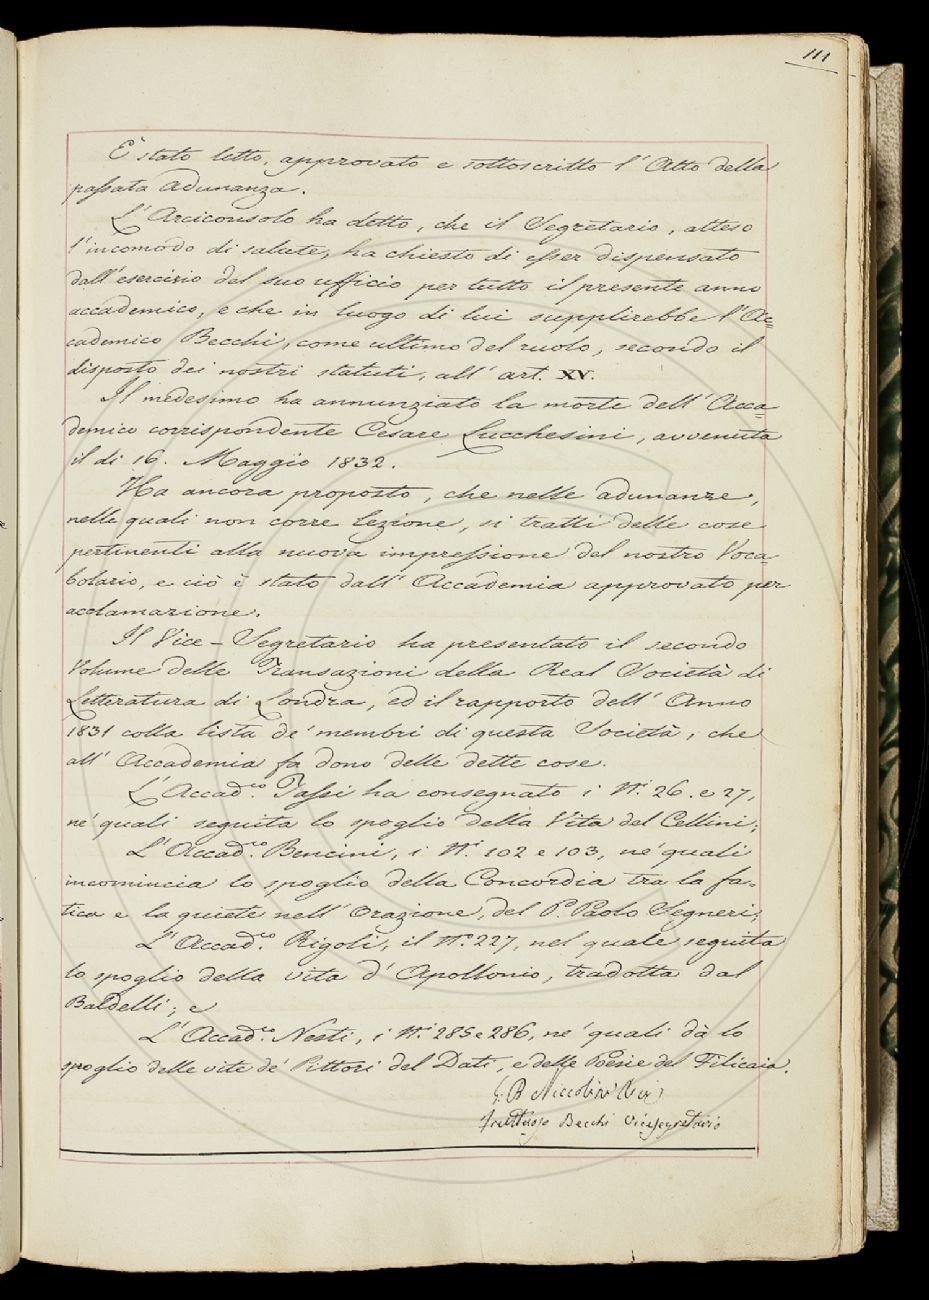 111
È stato letto, approvato e sottoscritto l'Atto della
passata adunanza.
L'Arciconsolo ha detto, che il Segretario, atteso
l'incomodo di salute, ha chiesto di esser dispensato
dall'esercizio del suo ufficio per tutto il presente anno
accademico, e che in luogo di lui supplirebbe l'Ac=
cademico Becchi, come ultimo del ruolo, secondo il
disposto dei nostri statuti, all'art. XV.
Il medesimo ha annunziato la morte dell'Acca=
demico corrispondente Cesare Lucchesini, avvenuta
il di 16. Maggio 1832.
Ha ancora proposto, che nelle adunanze,
nelle quali non corre lezione, si tratti delle cose
pertinenti alla nuova impressione del nostro Voca=
bolario, e ciò è stato dall'Accademia approvato per
acclamazione.
Il Vice-Segretario ha presentato il secondo
Volume delle Transazioni della Real Società di
Letteratura di Londra, ed il rapporto dell'Anno
1831 colla lista de' membri di questa Società, che
all'Accademia fa dono delle dette cose.
L'Accad.co Tassi ha consegnato i N.i 26. e 27,
ne' quali seguita lo spoglio della Vita del Cellini;
L'Accad.co Bencini, i N.i 102 e 103, ne' quali
incomincia lo spoglio della Concordia tra la fa-
tica e la quiete nell'orazione, del P. Paolo Segneri;
L'Accad.co Rigoli, il N.o 227, nel quale seguita
lo spoglio della vita d'Apollonio, tradotta dal
Baldelli; e
L'Accad.co Nesti, i N.i 285 e 286, ne' quali dà lo
spoglio delle vite de' Pittori del Dati, e delle Poesie del Filicaia.
G. B. Niccolini
Fruttuoso Becchi Vicesegretario